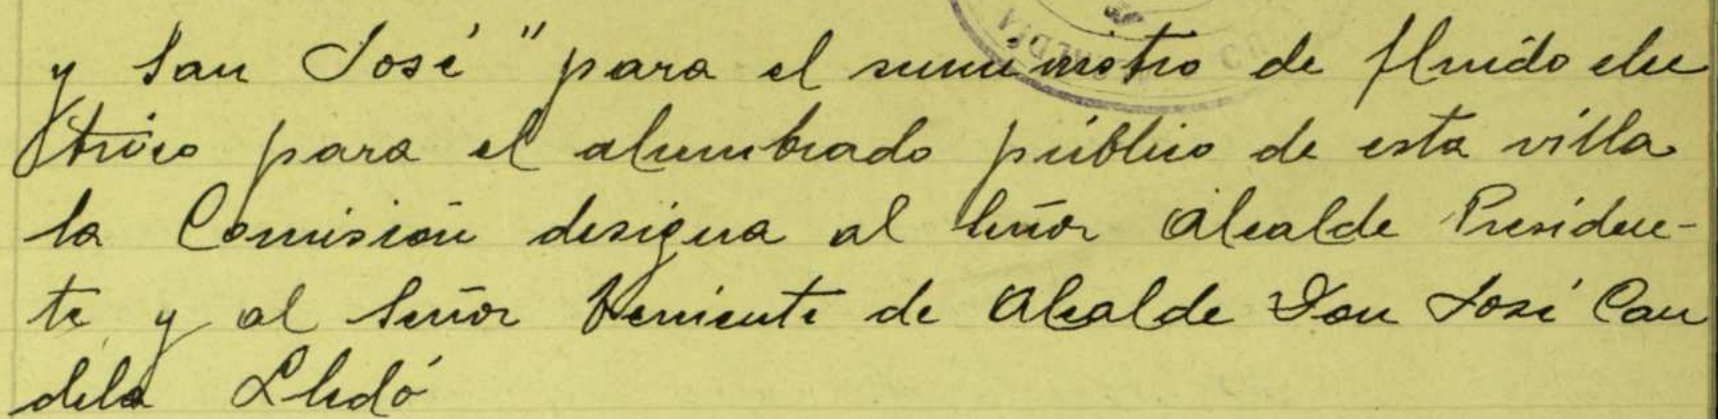 y San José" para el suministro de fluido elec
trico para el alumbrado público de esta villa
la Comisión designa al Señor Alcalde Presiden-
te y al Señor Teniente de Alcalde Don José Can
dela Lledó